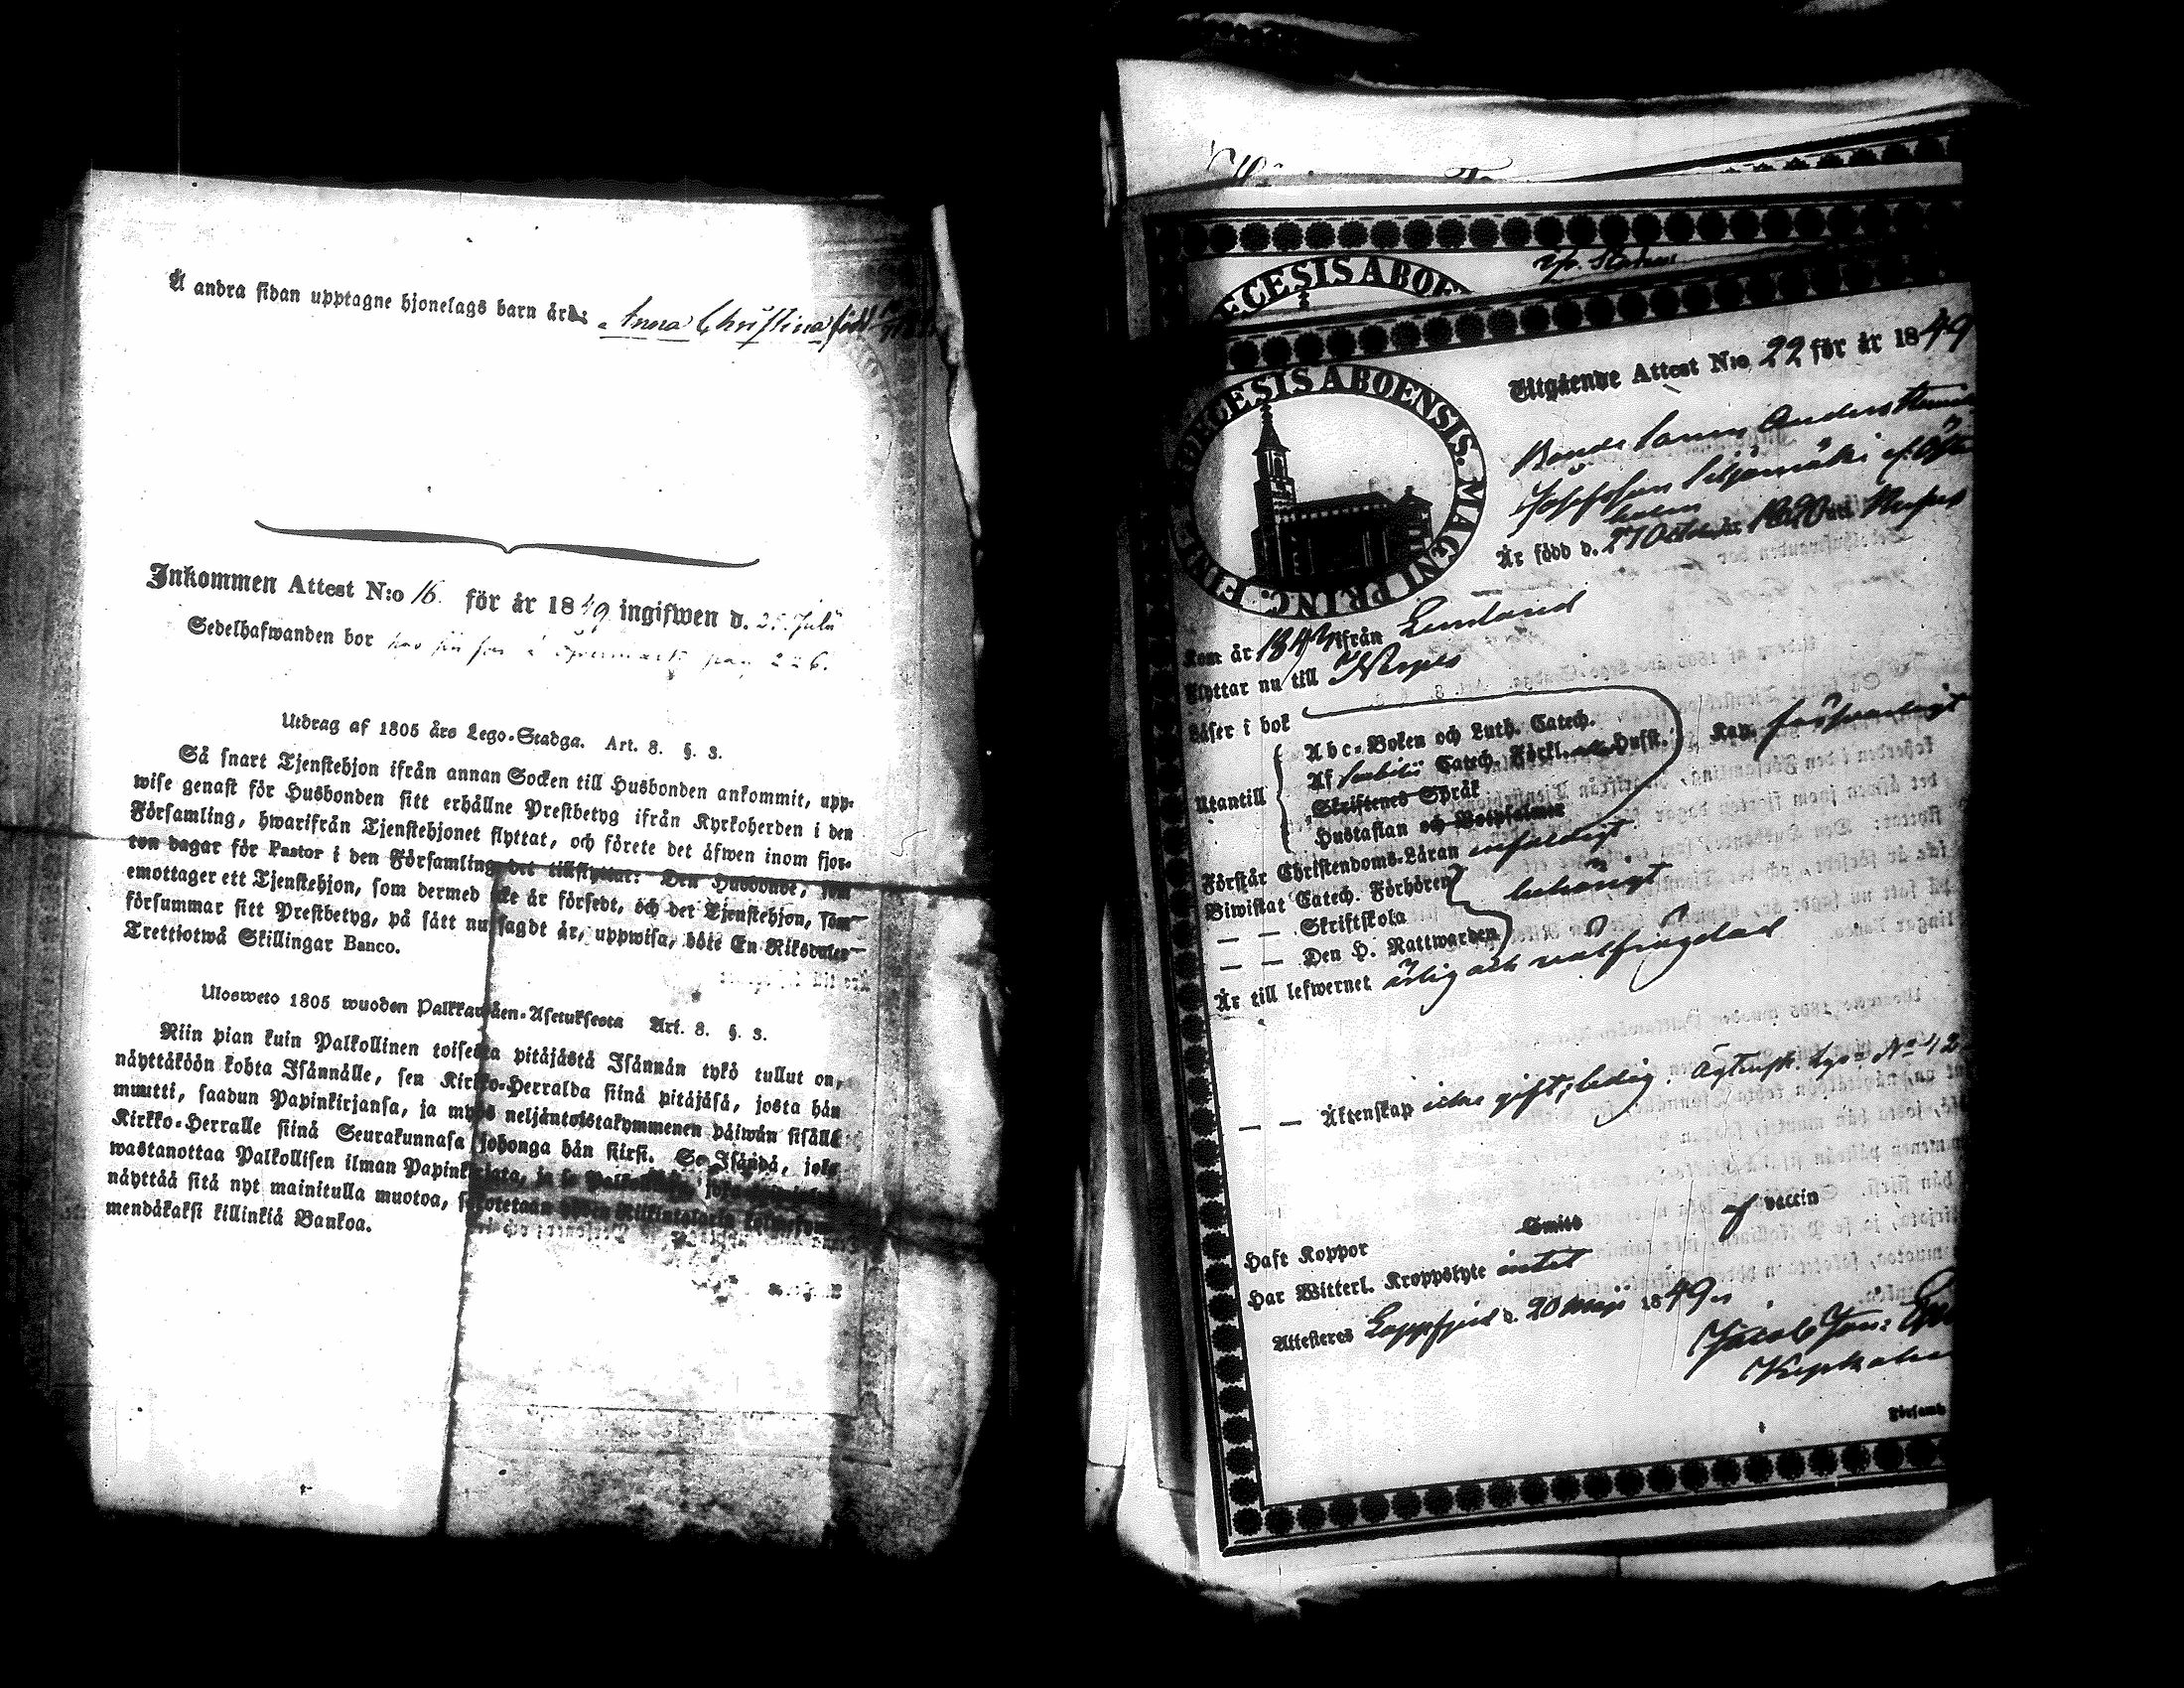 Å andra sidan upptagne hjonelags barn äro: Anna Christina född
Inkommen Attest N:o 16. för år 1849 ingifwen d. 25 Julii
Sedelhafwanden bor hos sin far i Öfvermark pag 226.
Utdrag af 1805 års Lego-Stadga. Art. 8. §. 3.
Så snart Tjenstehjon ifrån annan Socken till Husbonden ankommit, upp-
wise genast för Husbonden sitt erhållne Prestbetyg ifrån Kyrkoherden i den
Församling, hwarifrån Tjenstehjonet flyttat, och förete det äfwen inom fjor-
ton dagar för Pastor i den Församling det tillflyttar: Den Husbonde, som
emottager ett Tjenstehjon, som dermed icke är försedt, och det Tjenstehjon, som
försummar sitt Prestbetyg, på sätt nu sagdt är, uppwisa, böte En Riksdaler
Trettiotwå Skillingar Banco.
Ulosweto 1805 wuoden Palkkawäen-Asetuksesta Art. 8. §. 3.
Niin pian kuin Palkollinen toisesta pitäjästä Isännän tykö tullut on,
näyttäköön kohta Isännälle, sen Kirkko-Herralda siinä pitäjäsä, josta hän
muutti, saadun Papinkirjansa, ja myös neljäntoistakymmenen päiwän sisällä
Kirkko-Herralle siinä Seurakunnasa johonga hän siirsi. Se Isändä, joka
wastanottaa Palkollisen ilman Papinkirjata, ja se Palkollinen, joka
näyttää sitä nyt mainitulla muotoa, sakotetaan yhden Riikintalarin kolmekym-
mendäkaksi killinkiä Bankoa.
DIOECESIS ABOENSIS. MAGNI PRINC. FINL.
Utgående Attest N:o 22 för år 1849
Bonde Sonen Anders
Josefsson Siljamäki
Är född d. 27 October 1820 uti Nerpes
Kom år 1843 ifrån
Flyttar nu till Nerpes
Läser i bok
Abc-Boken och Luth. Catech.
Af Svebilii Catech. Förkl. Husst. Kan. försvarligt
Utantill
Skriftenes Språk
Hustaflan och Botpsalmer
Förstår Christendoms-Läran enfaldigt
Biwistat Catech. Förhören behörigt
— — Skriftskola
— — Den H. Nattwarden
Är till lefwernet ärlig och välfrägdad
— — Äktenskap icke gift, ledig.
Haft Koppor Smitt af vaccin
Har Witterl. Kroppslyte intet
Attesteras Lappfjerd d. 20 Maji 1849
Jacob Jon:
Församl